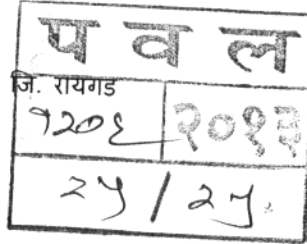 प व ल
जि. रायगड
१२०६ २०१३
२५ / २५